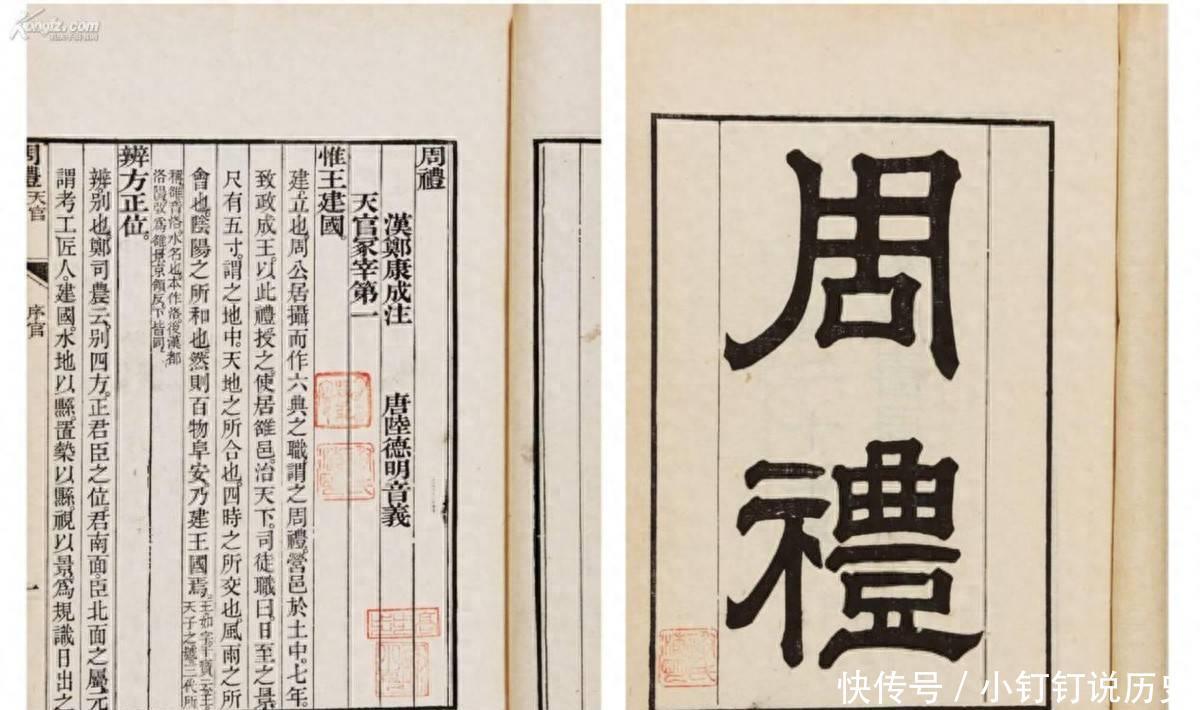 Kongfz.com
周禮
漢鄭康成注　唐陸德明音義
天官冢宰第一
惟王建國。
建立也。周公居攝而作六典之職。謂之周禮。營邑於土中。七年。
致政成王。以此禮授之。使居雒邑。治天下。司徒職曰。日至之景
尺有五寸。謂之地中。天地之所合也。四時之所交也。風雨之所
會也。陰陽之所和也。然則百物阜安。乃建王國焉。王如字。干寶云。王
天子之號。三代所
稱。雒音洛。水名也。本作洛。後漢都
洛陽。改爲雒。景京領反。下皆同。
辨方正位。
辨。別也。鄭司農云。別四方。正君臣之位。君南面。臣北面之屬。元
謂考工。匠人。建國。水地以縣。置槷以縣。視以景。爲規。識日出之
周禮 天官　序官　一
周禮
快传号 / 小钉钉说历史